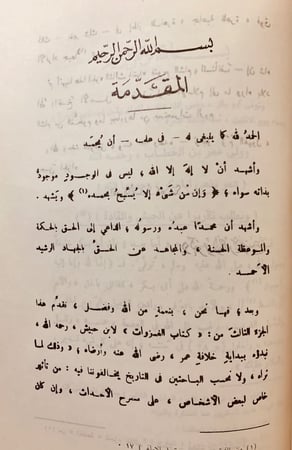 بسم الله الرحمن الرحيم
المقدمة
الحمد لله كما ينبغي له – في علمه – أن يُحمَد
وأشهد أن لا إله إلا الله ، ليس في الوجود موجودٌ
بذاته سواه ؛ ﴿ وَإِن مّن شَىْءٍ إلا يُسَبِّحُ بحمده(١) ﴾ ويشهد .
وأشهد أن محمدًا عبده ورسوله ، الداعي إلى الحق بالحكمة
والموعظة الحسنة ، والمجاهد عن الحق الجهاد الرشيد
الأحمد .
وبعد ؛ فها نحن ، بنعمةٍ من الله وفضل ، نقدّم هذا
الجزء الثالث من : « كتاب الغزوات » لابن حبيش ، رحمه الله ،
نبدؤه ببداية خلافة عمر ، رضى الله عنه وأرضاه ؛ وذلك لما
نراه ، ولا نحسب الباحثين في التاريخ يخالفوننا فيه : من تأثير
خاص لبعض الأشخاص ، على مسرح الأحداث ، وإن كان
(١)